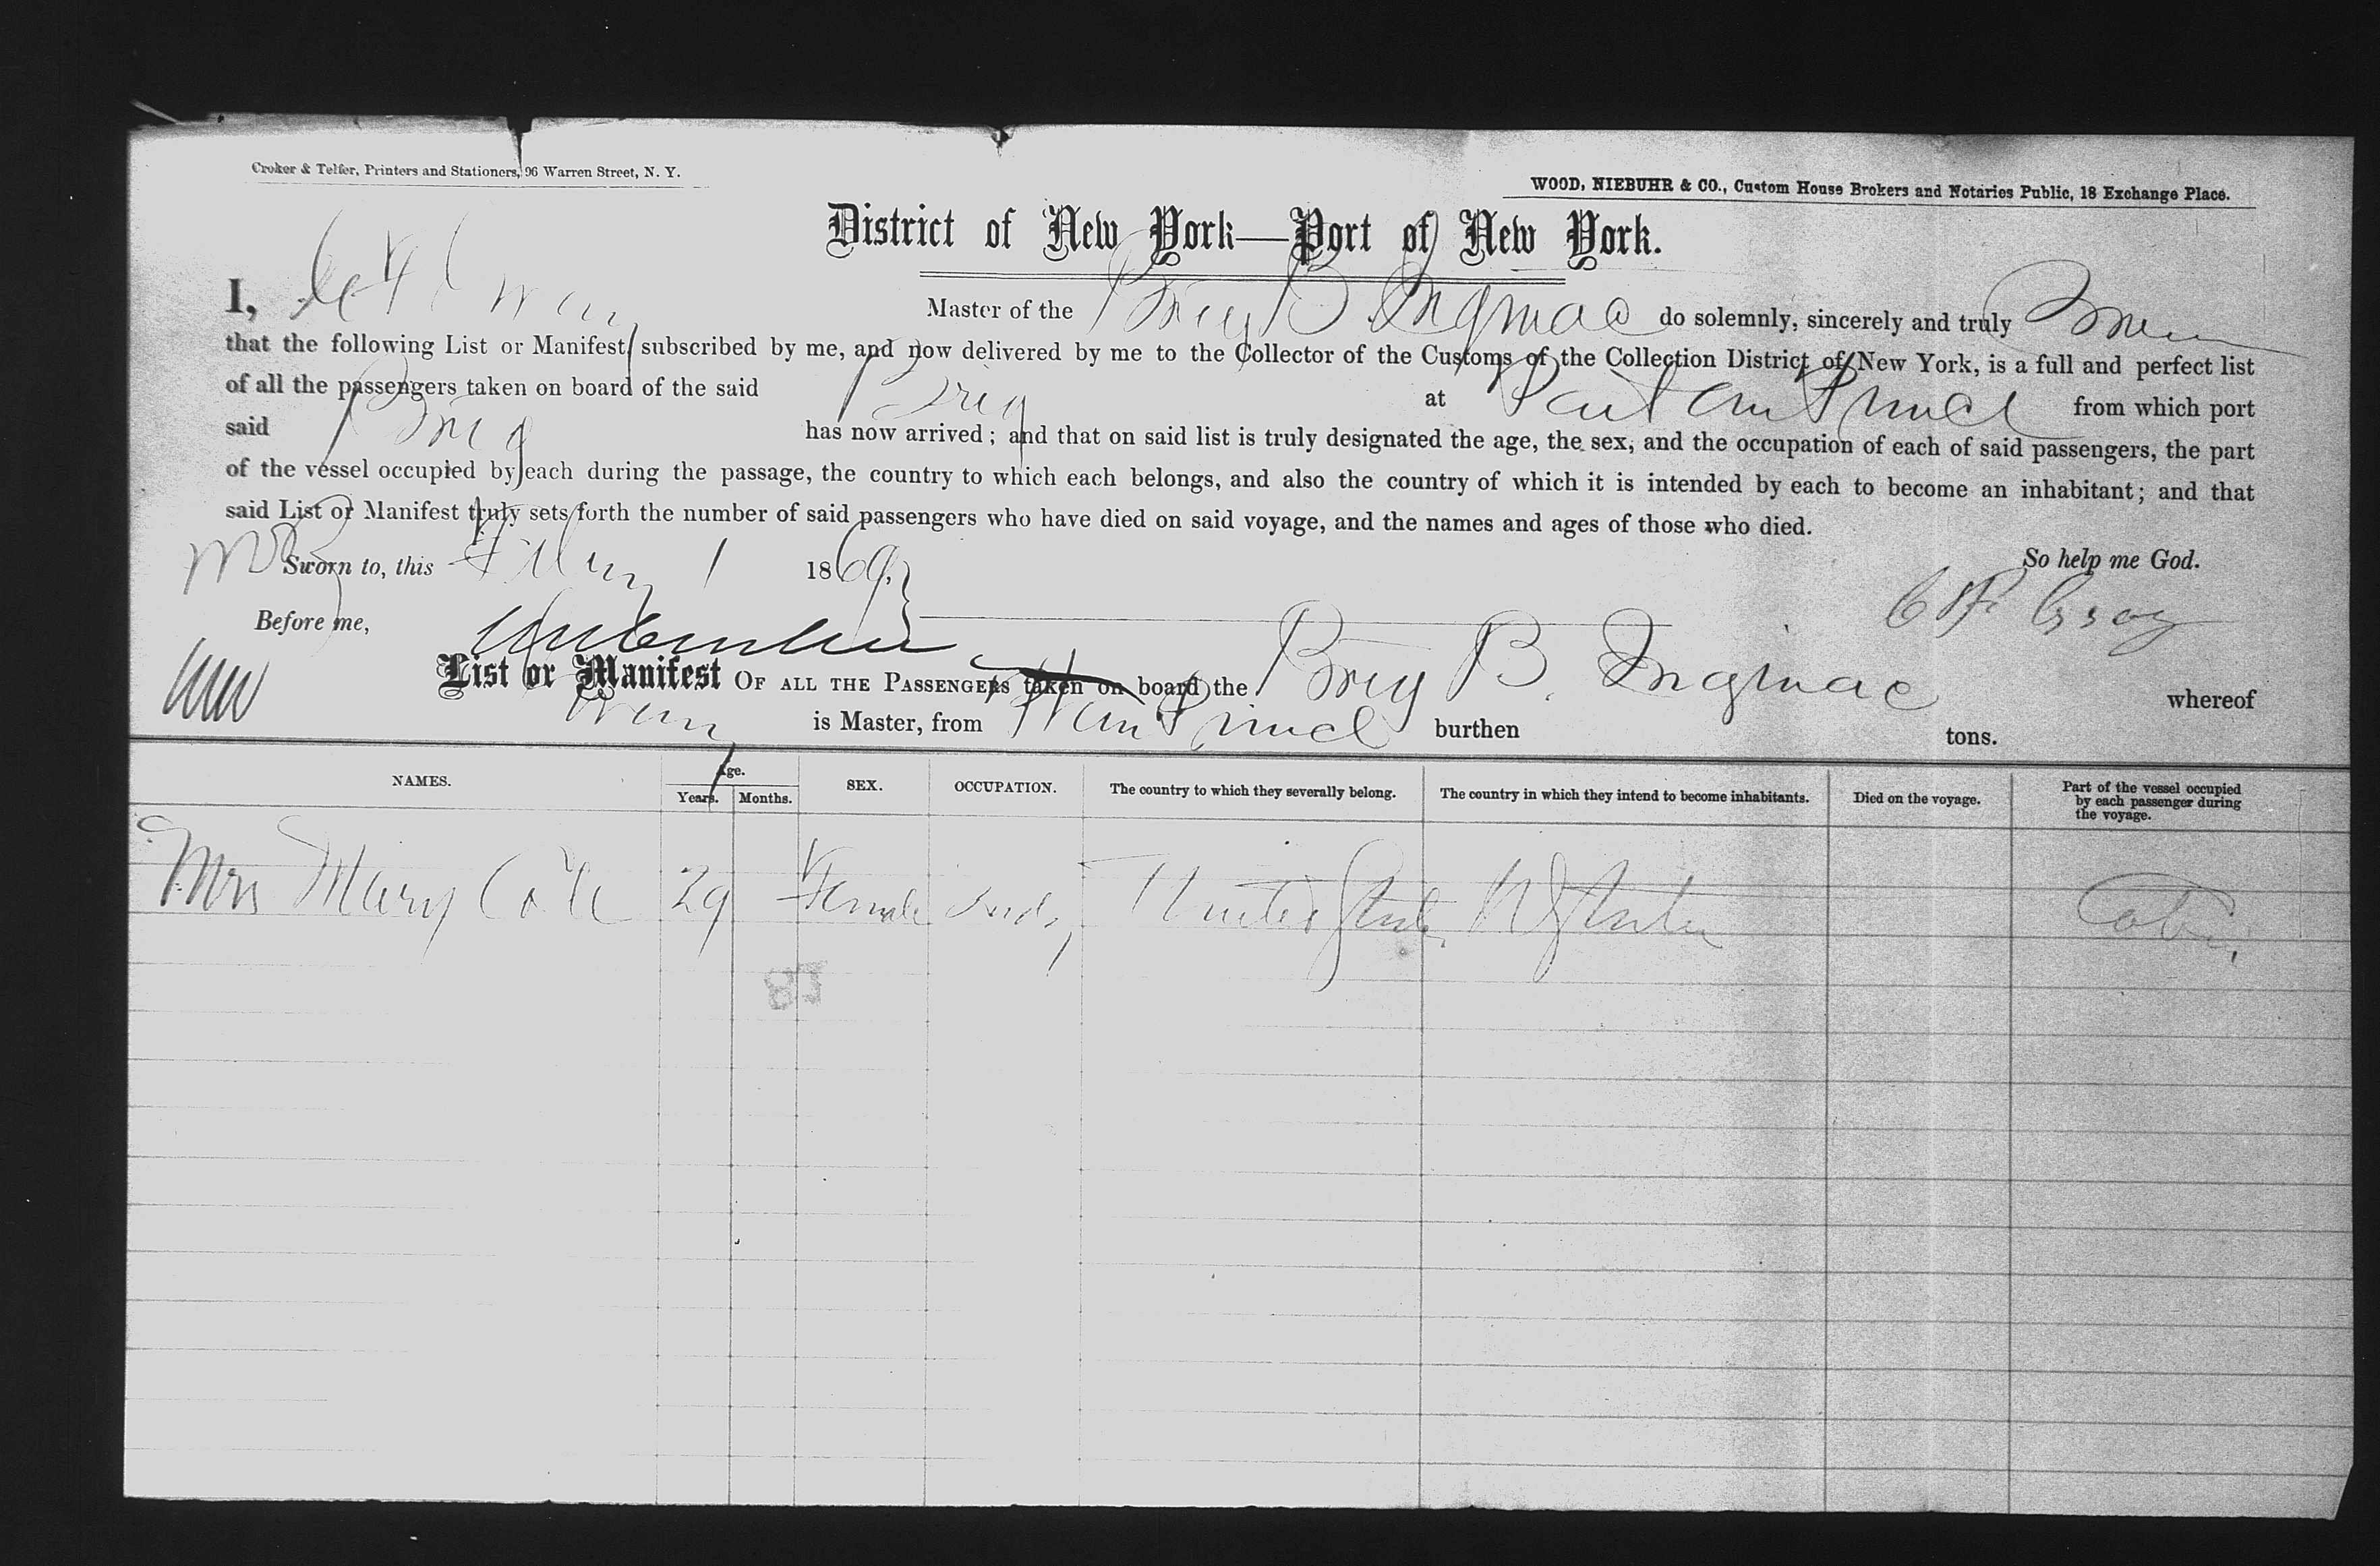 Croker & Telfer, Printers and Stationers, 96 Warren Street, N. Y.
WOOD, NIEBUHR & CO., Custom House Brokers and Notaries Public, 18 Exchange Place.
District of New York—Port of New York.
I, Master of the Brig B. Inginac do solemnly, sincerely and truly Swear
that the following List or Manifest, subscribed by me, and now delivered by me to the Collector of the Customs of the Collection District of New York, is a full and perfect list
of all the passengers taken on board of the said Brig at Port au Prince from which port
said Brig has now arrived; and that on said list is truly designated the age, the sex, and the occupation of each of said passengers, the part
of the vessel occupied by each during the passage, the country to which each belongs, and also the country of which it is intended by each to become an inhabitant; and that
said List or Manifest truly sets forth the number of said passengers who have died on said voyage, and the names and ages of those who died.
Sworn to, this 1 1869. So help me God.
Before me, Gray
List or Manifest OF ALL THE PASSENGERS taken on board the Brig B. Inginac whereof
Gray is Master, from Port au Prince burthen tons.
NAMES. Age. Years. Months. SEX. OCCUPATION. The country to which they severally belong. The country in which they intend to become inhabitants. Died on the voyage. Part of the vessel occupied by each passenger during the voyage.
Mrs Mary Cole 29 Female Lady United States U States Cabin